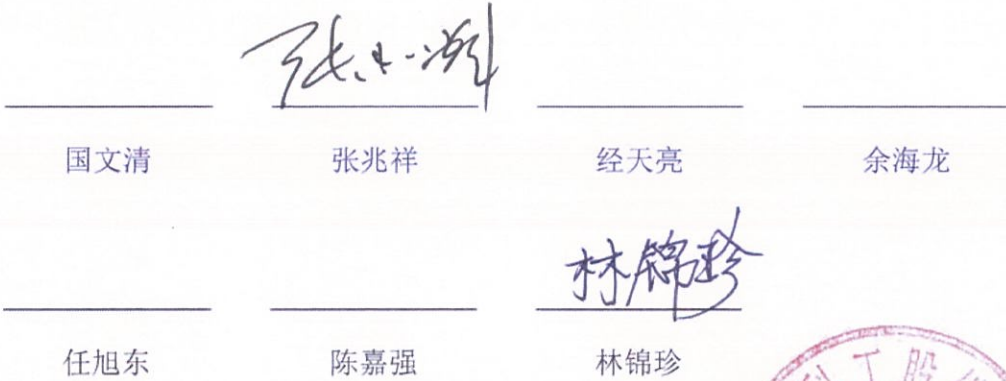 张兆祥
国文清 张兆祥 经天亮 余海龙
林锦珍
任旭东 陈嘉强 林锦珍
工股